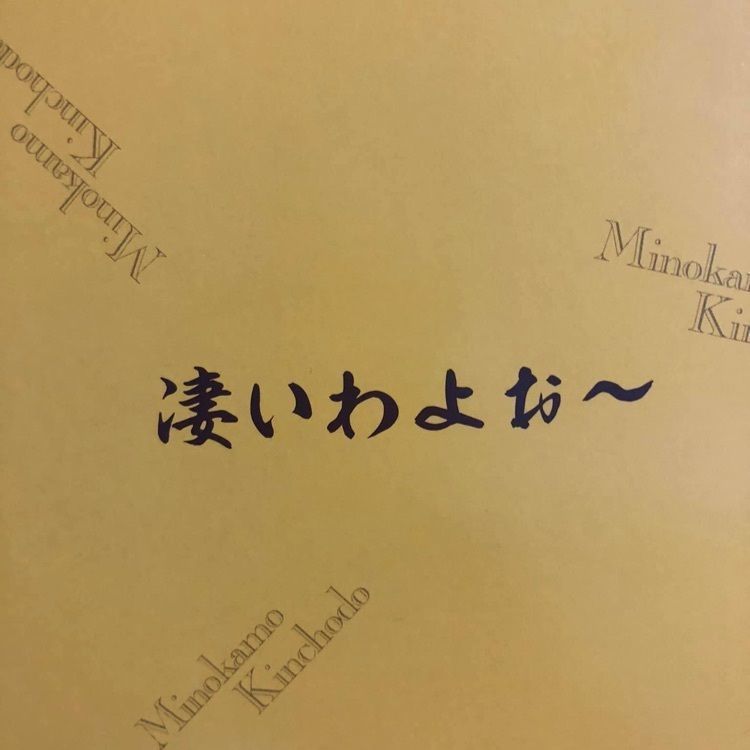 Kinchodo
Minokamo
Minokam
Kin
凄いわよぉ〜
Minokamo
Kinchodo